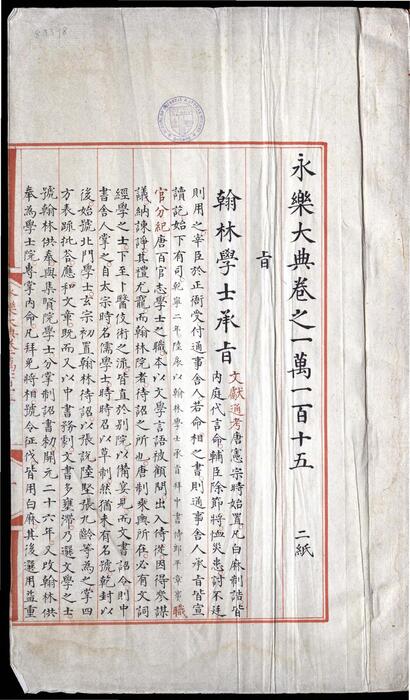 永樂大典卷之一萬一百十五 二紙
旨
翰林學士承旨
文獻通考唐憲宗時始置凡白麻制誥皆
内庭代言命輔臣除節將恤災患討不廷
則用之宰臣於正衙受付通事舍人若命相之書則通事舍人承旨皆宣
讀訖始下有司乾寧二年陸扆以翰林學士承旨拜中書侍郎平章事職
官分紀唐百官志學士之職本以文學言語被顧問出入侍從因得參謀
議納諫諍其禮尤寵而翰林院者待詔之所也唐制乘輿所在必有文詞
經學之士下至卜醫伎術之流皆直於別院以備宴見而文書詔令則中
書舍人掌之自太宗時名儒學士時時召以草制然猶未有名號乾封以
後始號北門學士玄宗初置翰林待詔以張說陸堅張九齡等為之掌四
方表疏批答應和文章既而又以中書務劇文書多壅滯乃選文學之士
號翰林供奉與集賢院學士分掌制詔書勑開元二十六年又改翰林供
奉為學士院專掌内命凡拜免將相號令征伐皆用白麻其後選用益重